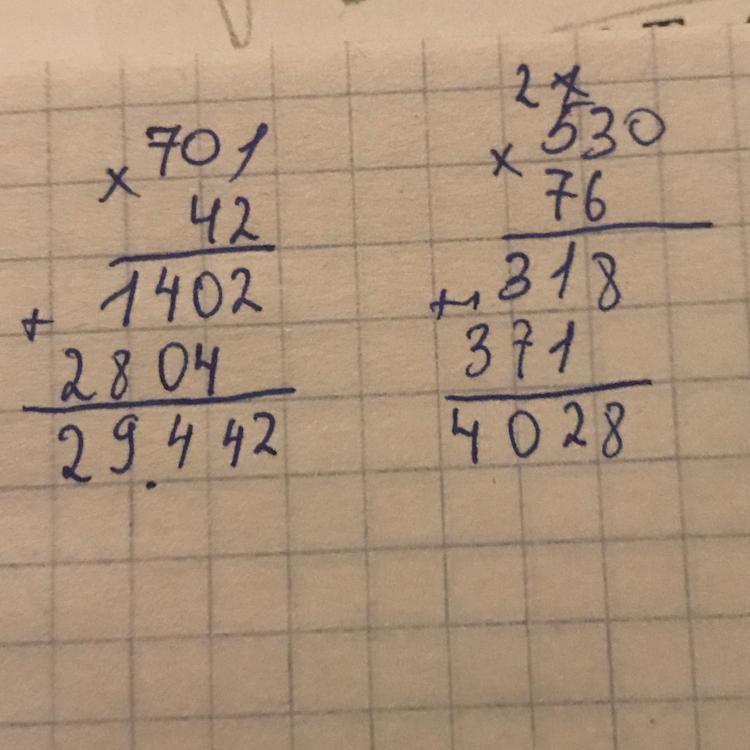 × 701
42
+ 1402
2804
29.442
2 1
× 530
76
+ 318
371
4028